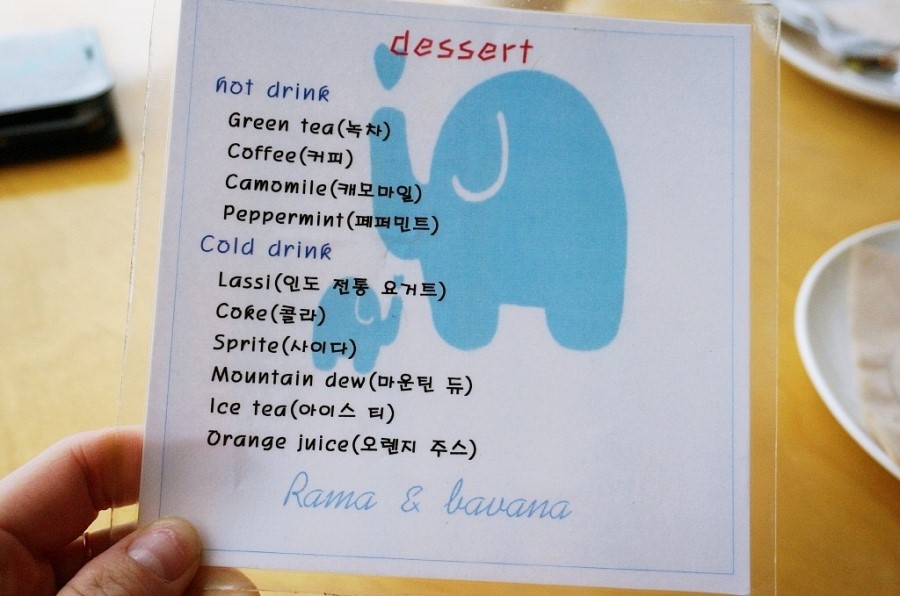 dessert
hot drink
Green tea(녹차)
Coffee(커피)
Camomile(캐모마일)
Peppermint(페퍼민트)
Cold drink
Lassi(인도 전통 요거트)
Coke(콜라)
Sprite(사이다)
Mountain dew(마운틴 듀)
Ice tea(아이스 티)
Orange juice(오렌지 주스)
Rama & bavana